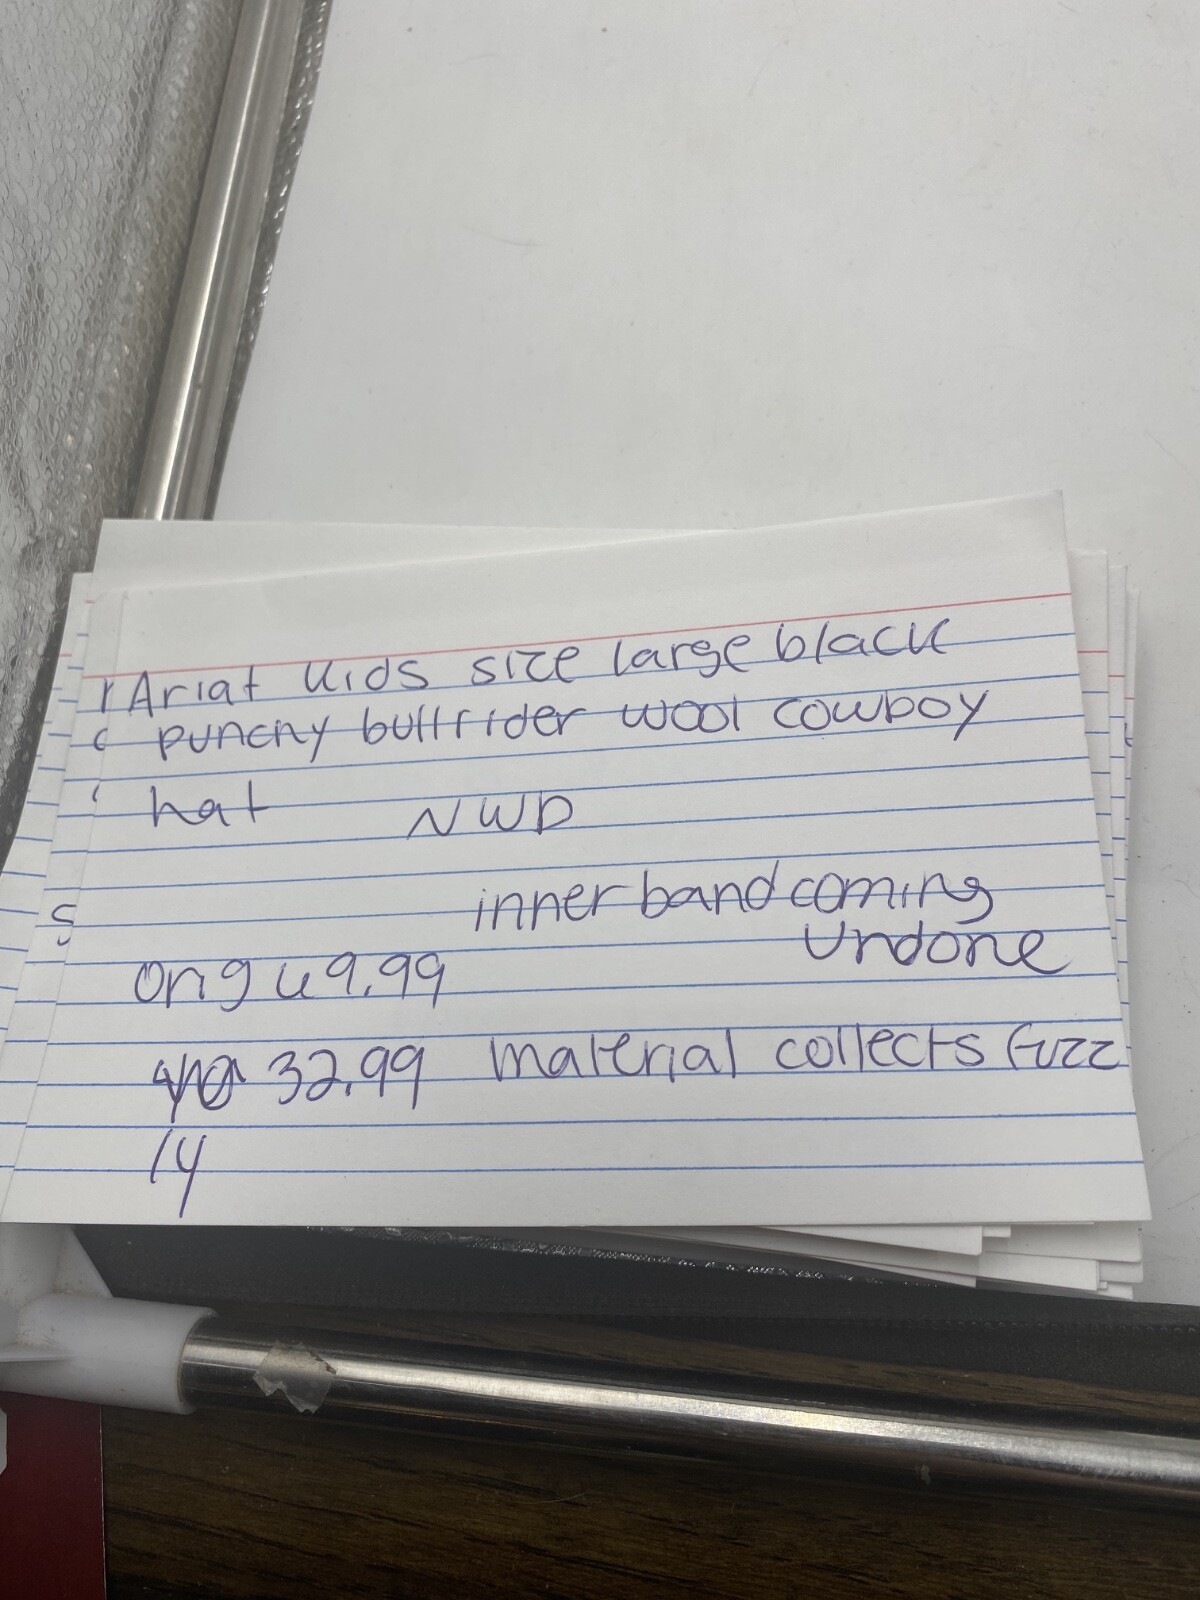 Ariat kids size large black
punchy bullrider wool cowboy
hat NWD
inner band coming
undone
Orig 49.99
32.99 material collects fuzz
14